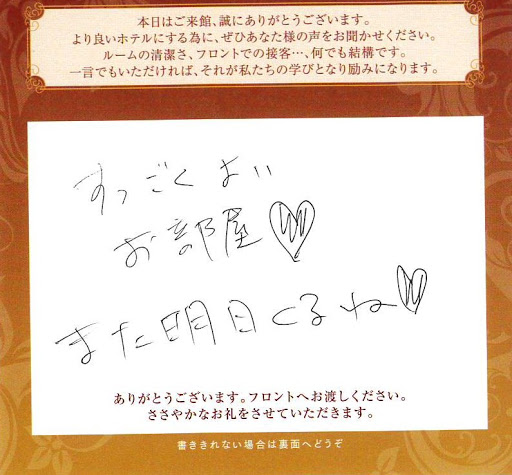 本日はご来館、誠にありがとうございます。
より良いホテルにする為に、ぜひあなた様の声をお聞かせください。
ルームの清潔さ、フロントでの接客…、何でも結構です。
一言でもいただければ、それが私たちの学びとなり励みになります。
すっごくよい
お部屋♡
また明日くるね♡
ありがとうございます。フロントへお渡しください。
ささやかなお礼をさせていただきます。
書ききれない場合は裏面へどうぞ